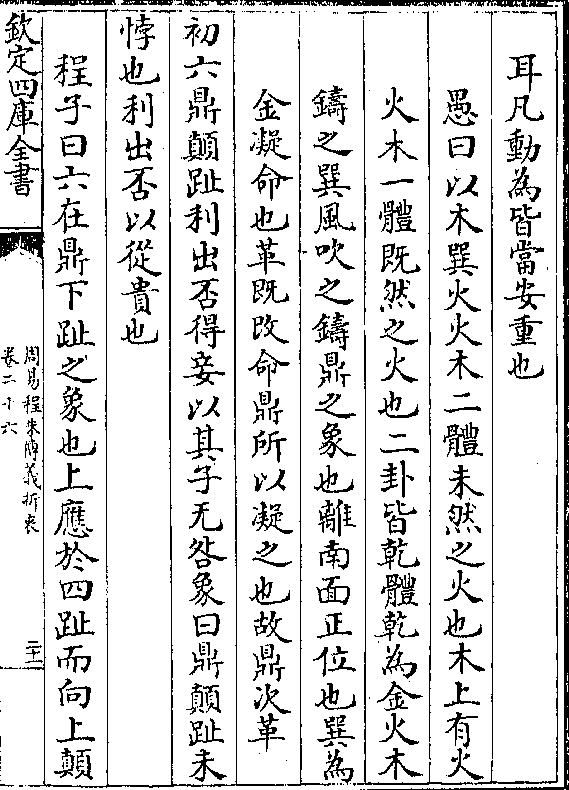 耳凡動為皆當安重也
愚曰以木巽火火木二體未然之火也木上有火
火木一體既然之火也二卦皆乾體乾為金火木
鑄之巽風吹之鑄鼎之象也離南面正位也巽為
金凝命也革既改命鼎所以凝之也故鼎次革
初六鼎顛趾利出否得妾以其子无咎象曰鼎顛趾未
悖也利出否以從貴也
程子曰六在鼎下趾之象也上應於四趾而向上顛
欽定四庫全書
周易程朱傳義折衷
卷二十六
二十二